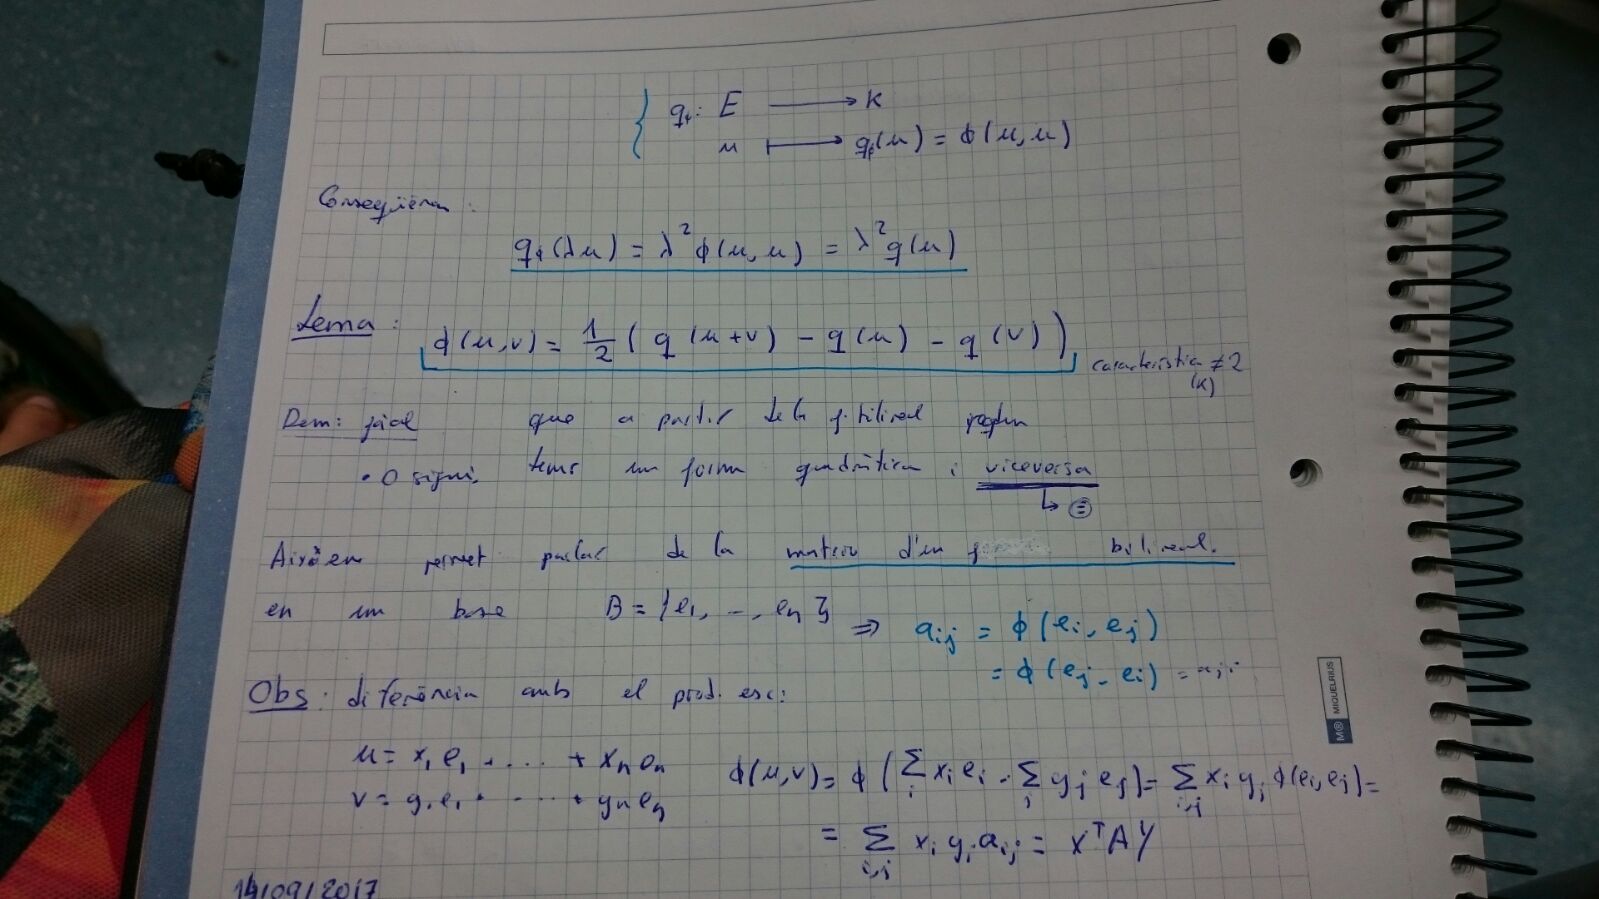 qϕ: E → K
u ↦ qϕ(u) = ϕ(u,u)
Conseqüència:
qϕ(λu) = λ²ϕ(u,u) = λ²q(u)
Lema: ϕ(u,v) = 1/2 ( q(u+v) - q(u) - q(v) )
característica ≠ 2
(K)
Dem: fàcil que a partir de la f. bilineal
• O sigui, tenim una forma quadràtica i viceversa
↳ ☺
Això em permet parlar de la matriu d'una bilineal.
en una base B = {e1, ..., en} ⇒ aij = ϕ(ei, ej)
= ϕ(ej, ei) = aji
Obs: diferència amb el prod. esc:
u = x1e1 + .... + xnen
v = y1e1 + .... + ynen
ϕ(u,v) = ϕ(∑i xiei, ∑j yjej) = ∑i,j xiyjϕ(ei,ej) =
= ∑i,j xiyjaij = XᵀAY
14/09/2017
M® MIQUELRIUS